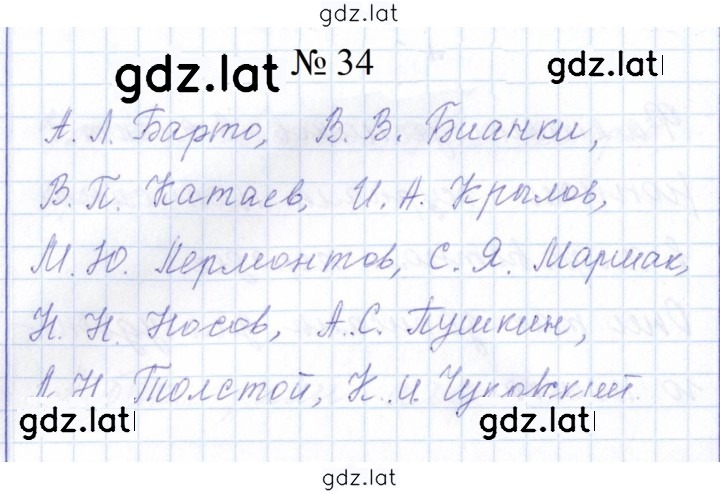 gdz.lat
gdz.lat № 34 gdz.lat
А. Л. Барто, В. В. Бианки,
В. П. Катаев, И. А. Крылов,
М. Ю. Лермонтов, С. Я. Маршак,
Н. Н. Носов, А. С. Пушкин,
Л. Н. Толстой, К. И. Чуковский.
gdz.lat gdz.lat
gdz.lat